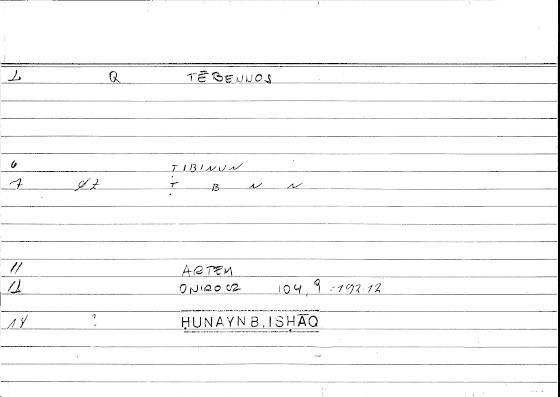 1 Q TĒBENNOS
6 ṬIBINUN
7 07 Ṭ B N N
11 ARTEM
12 ONIROCR 104,9 :192 12
14 : ḤUNAYN B. ISḤĀQ